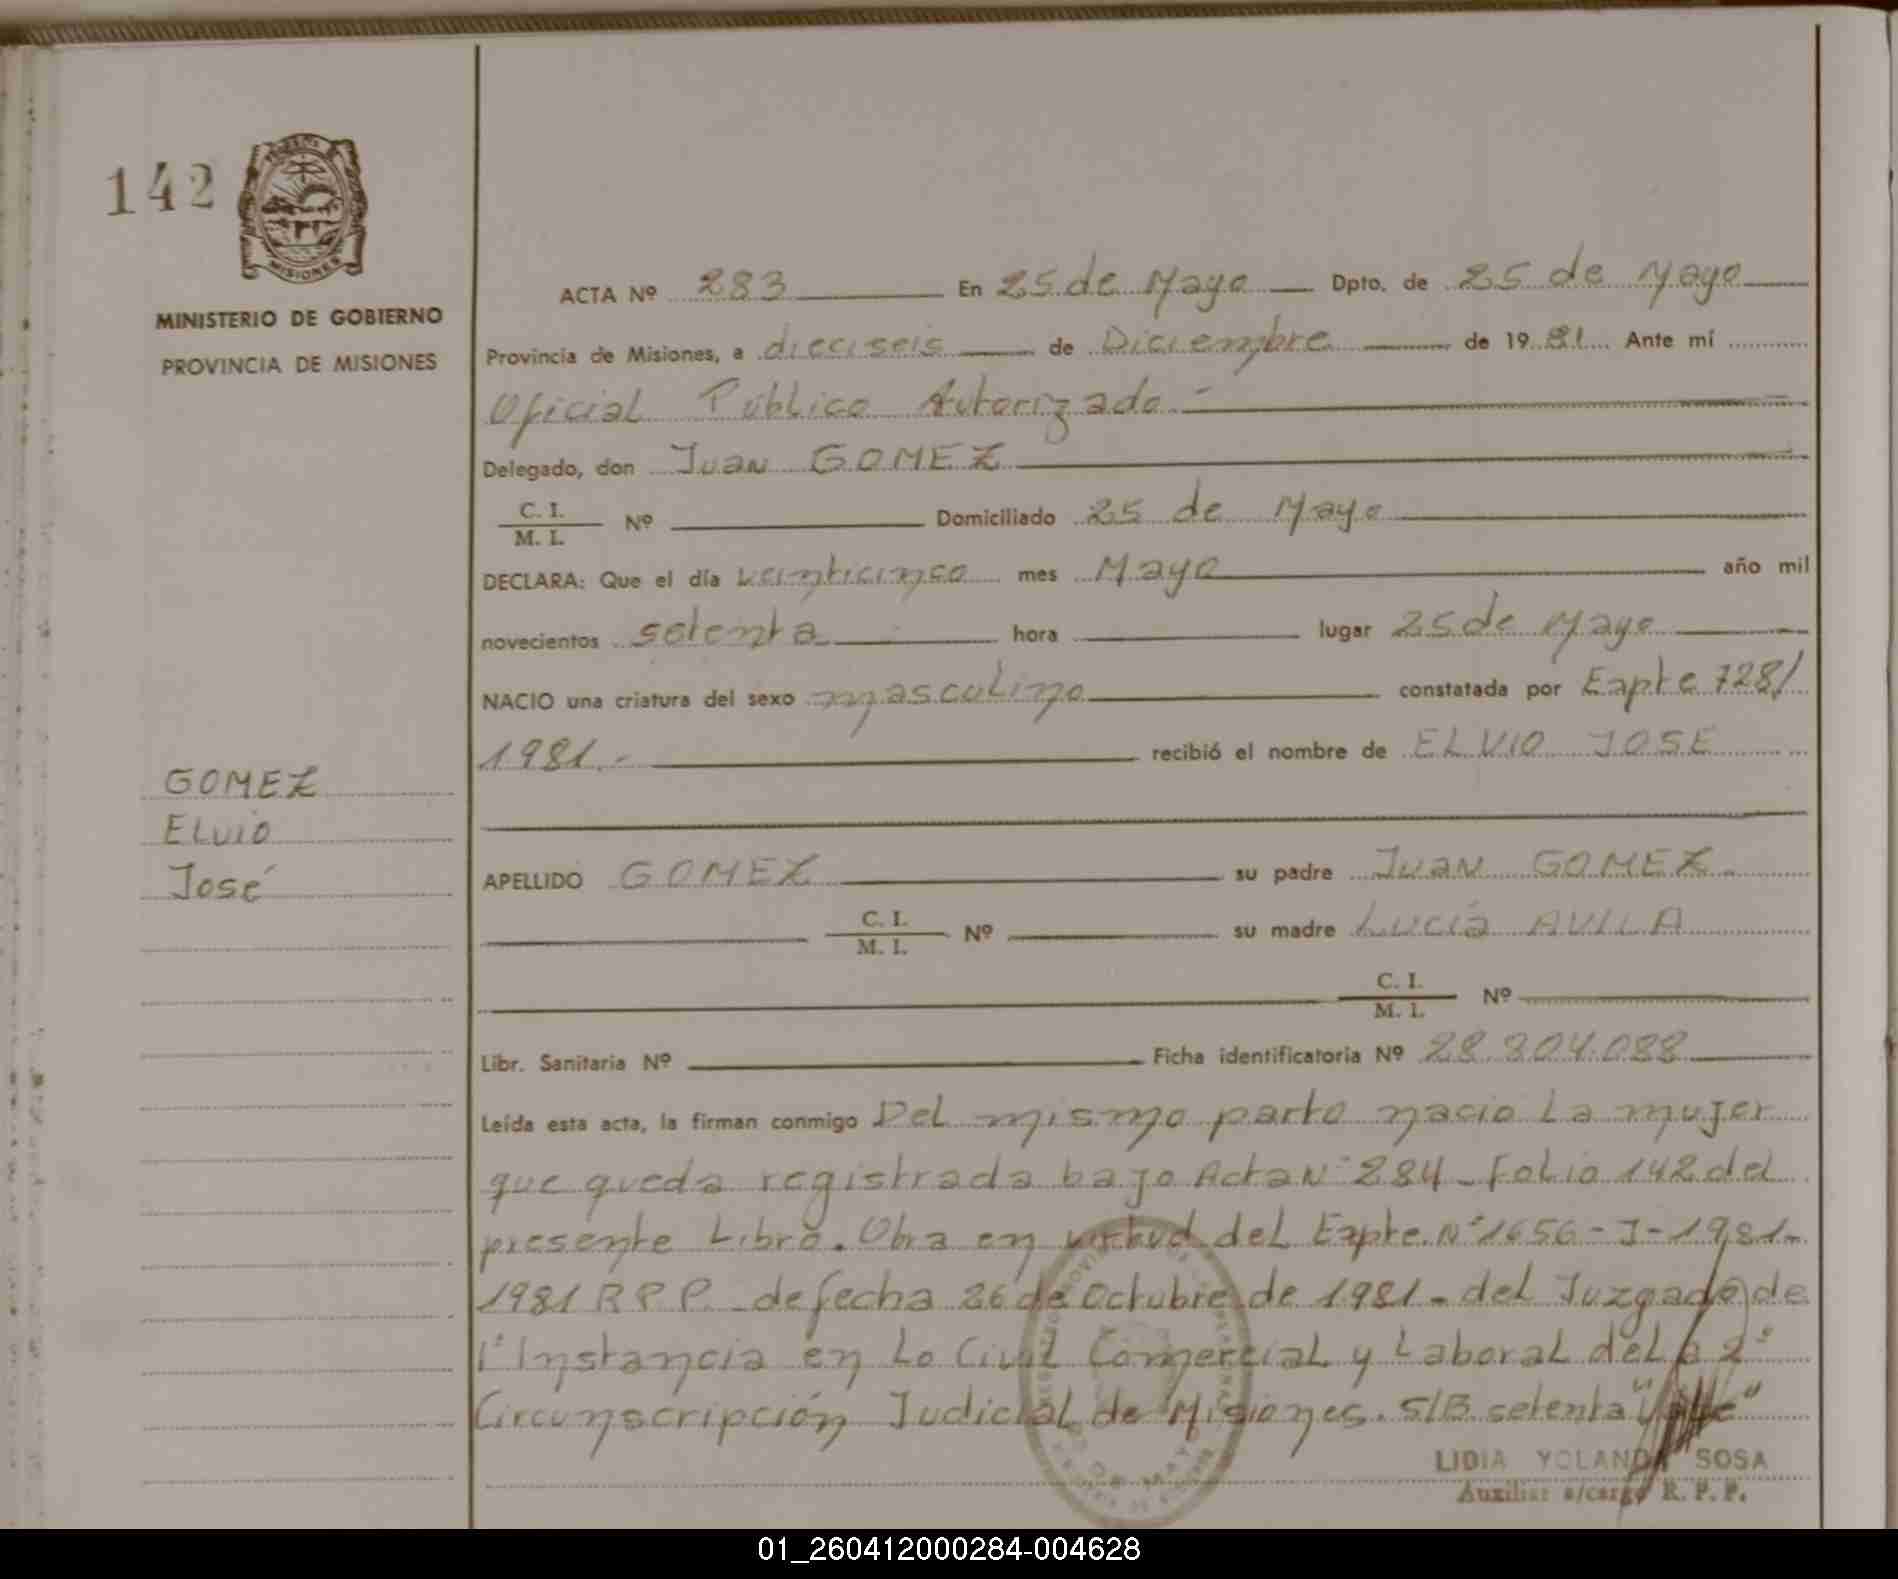 142
MISIONES
MINISTERIO DE GOBIERNO
PROVINCIA DE MISIONES
GOMEZ
ELVIO
José
ACTA Nº 283 En 25 de Mayo Dpto. de 25 de Mayo
Provincia de Misiones, a dieciseis de Diciembre de 1981 Ante mí
Oficial Público Autorizado.-
Delegado, don Juan GOMEZ
C. I.
M. I. Nº Domiciliado 25 de Mayo
DECLARA: Que el día veinticinco mes Mayo año mil
novecientos setenta hora lugar 25 de Mayo
NACIO una criatura del sexo masculino constatada por Expte 728/
1981.- recibió el nombre de ELVIO JOSE
APELLIDO GOMEZ su padre Juan GOMEZ.
C. I.
M. I. Nº su madre Lucía AVILA
C. I.
M. I. Nº
Libr. Sanitaria Nº Ficha identificatoria Nº 28.804.088
Leída esta acta, la firman conmigo Del mismo parto nacio La mujer
que queda registrada bajo Acta Nº 284 - Folio 142 del
presente Libro. Obra en virtud del Expte. Nº 1656-J-1981-
1981 R P P. - de fecha 26 de Octubre de 1981 - del Juzgado de
1º Instancia en Lo Civil Comercial y Laboral de La 2º
Circunscripción Judicial de Misiones. S/B setenta "Vale"
LIDIA YOLANDA SOSA
Auxiliar a/cargo R. P. P.
01_260412000284-004628